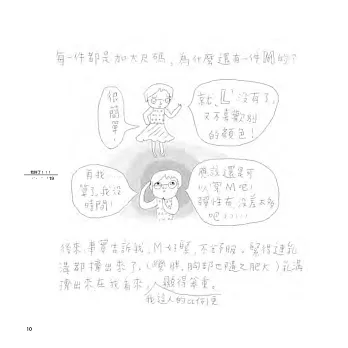 每一件都是加大尺碼，為什麼還有一件M的？
很簡單！
就"L"沒有了，
又不喜歡別
的顏色！
再我
算了，我沒
時間！
應該還是可
以穿M吧！
彈性有，沒差太多
吧！！！！！
後來，事實告訴我，M好緊，不舒服。緊得連乳
溝都擠出來了。（變胖，胸部也隨之肥大）乳溝
擠出來，在我看來，顯得笨重。
我這人的
10